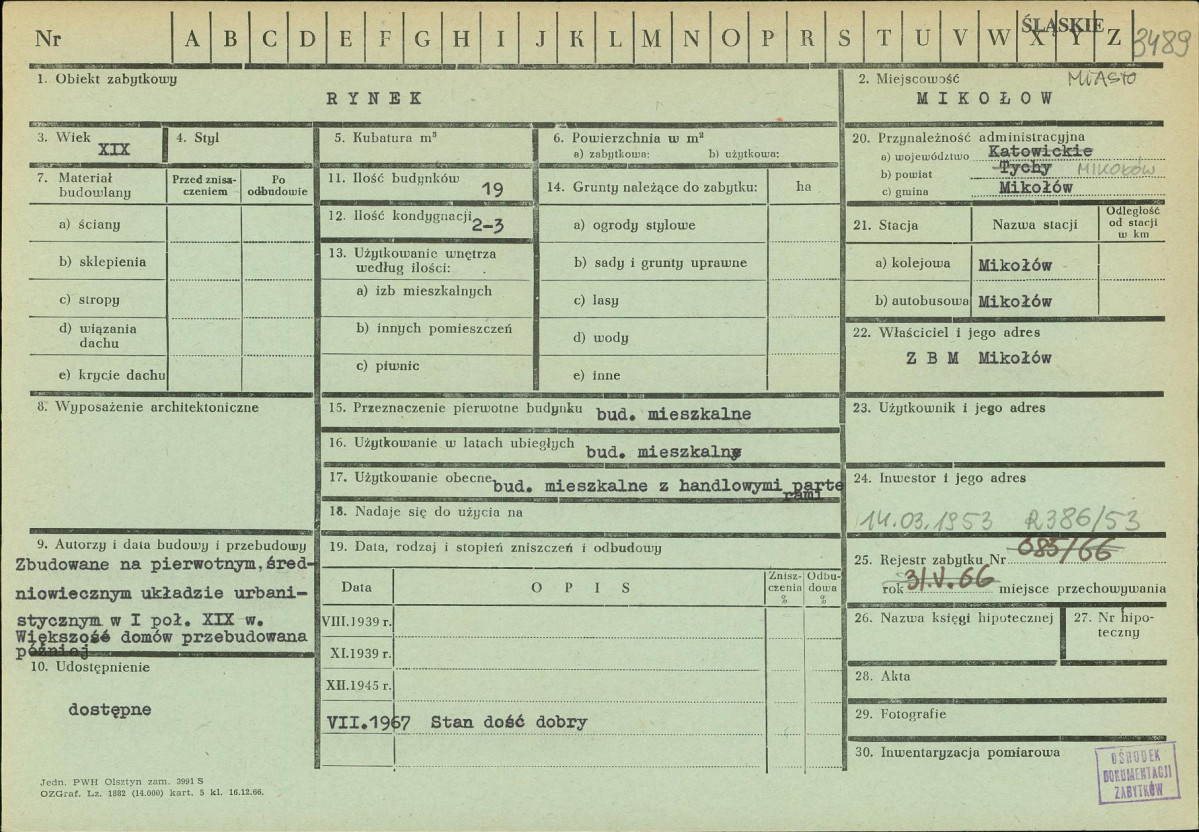 ŚLĄSKIE
Nr A B C D E F G H I J K L M N O P R S T U V W X Y Z 3489
1. Obiekt zabytkowy
RYNEK
2. Miejscowość MIASTO
MIKOŁOW
3. Wiek
XIX
4. Styl
5. Kubatura m³
6. Powierzchnia w m²
a) zabytkowa: b) użytkowa:
20. Przynależność administracyjna
a) województwo Katowickie
b) powiat Tychy MIKOŁÓW
c) gmina Mikołów
7. Materiał budowlany
Przed zniszczeniem
Po odbudowie
a) ściany
b) sklepienia
c) stropy
d) wiązania dachu
e) krycie dachu
11. Ilość budynków 19
12. Ilość kondygnacji 2-3
13. Użytkowanie wnętrza
według ilości:
a) izb mieszkalnych
b) innych pomieszczeń
c) piwnic
14. Grunty należące do zabytku: ha
a) ogrody stylowe
b) sady i grunty uprawne
c) lasy
d) wody
e) inne
21. Stacja Nazwa stacji Odległość od stacji w km
a) kolejowa Mikołów
b) autobusowa Mikołów
22. Właściciel i jego adres
Z B M Mikołów
8. Wyposażenie architektoniczne
15. Przeznaczenie pierwotne budynku bud. mieszkalne
16. Użytkowanie w latach ubiegłych bud. mieszkalne
17. Użytkowanie obecne bud. mieszkalne z handlowymi parte
rami
18. Nadaje się do użycia na
23. Użytkownik i jego adres
24. Inwestor i jego adres
14.03.1953 R386/53
25. Rejestr zabytku Nr 685/66
rok 31.V.66 miejsce przechowywania
9. Autorzy i data budowy i przebudowy
Zbudowane na pierwotnym, śred-
niowiecznym układzie urbani-
stycznym w I poł. XIX w.
Większość domów przebudowana
później
10. Udostępnienie
dostępne
19. Data, rodzaj i stopień zniszczeń i odbudowy
Data OPIS Zniszczenia % Odbudowa %
VIII.1939 r.
XI.1939 r.
XII.1945 r.
VII.1967 Stan dość dobry
26. Nazwa księgi hipotecznej
27. Nr hipoteczny
28. Akta
29. Fotografie
30. Inwentaryzacja pomiarowa
OŚRODEK
DOKUMENTACJI
ZABYTKÓW
Jedn. PWH Olsztyn zam. 3991 S
OZGraf. Lz. 1882 (14.000) kart. 5 kl. 16.12.66.